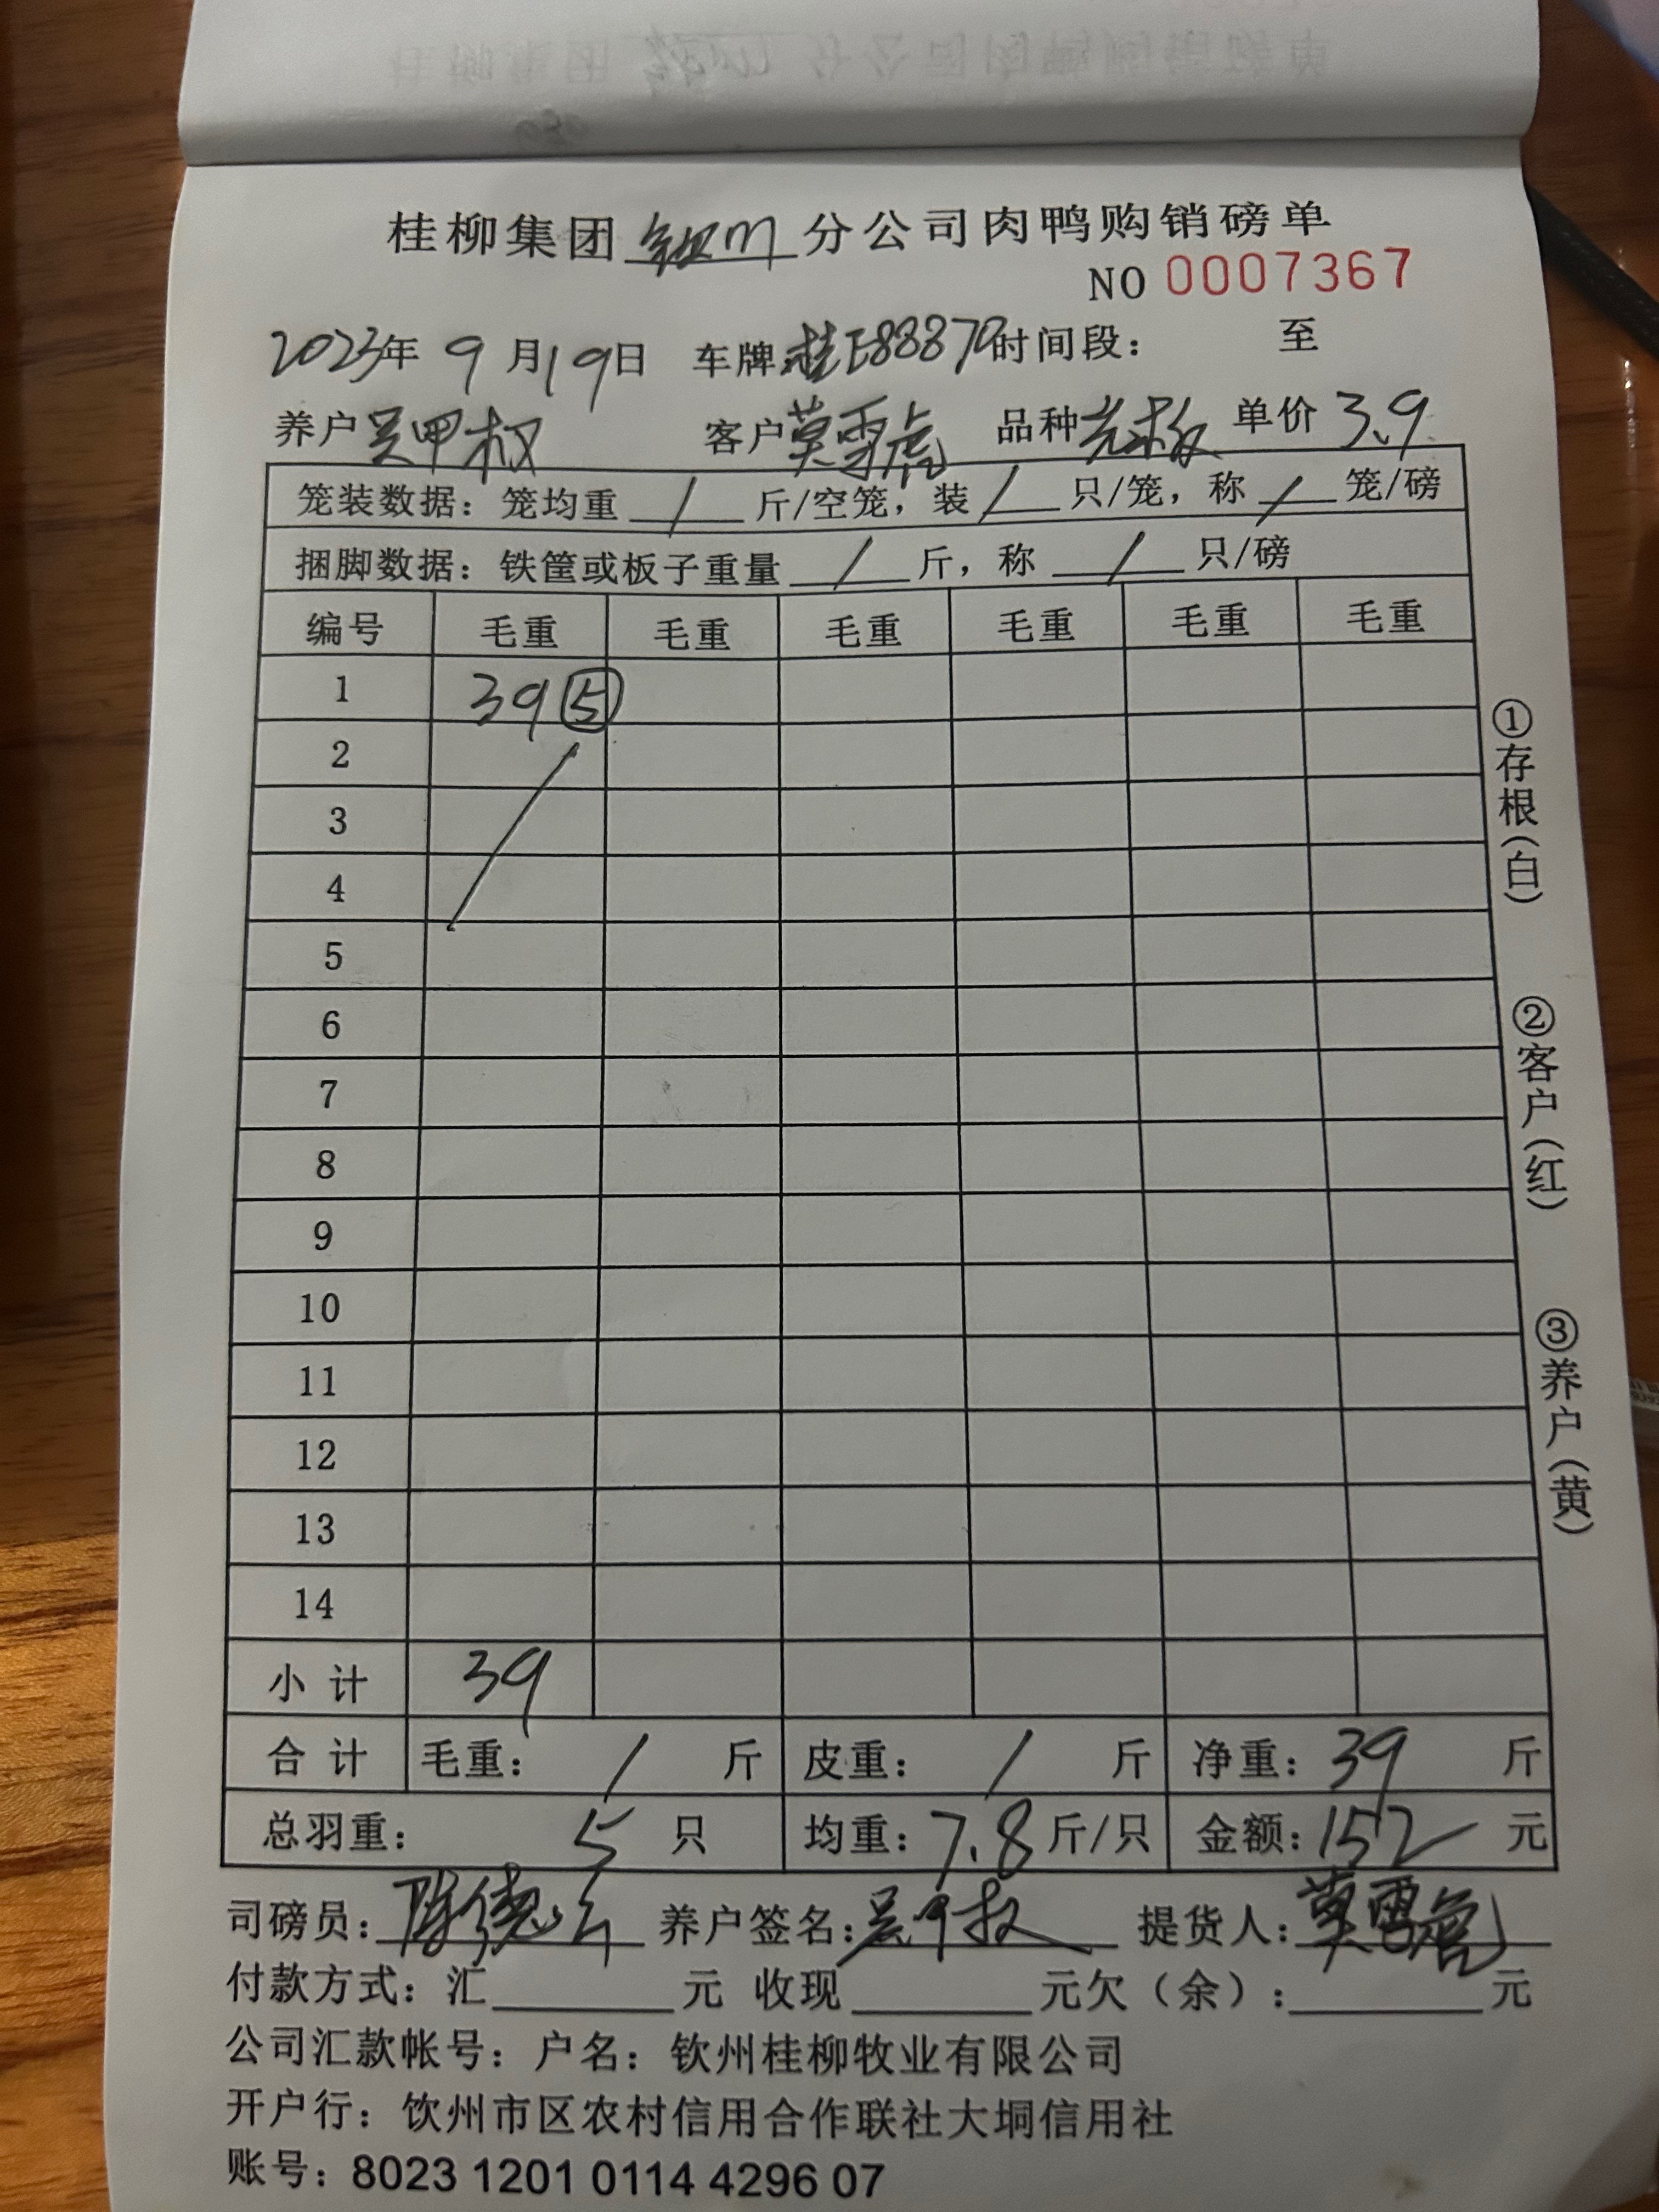 桂柳集团钦州分公司肉鸭购销磅单
NO 0007367
2023年9月19日 车牌:桂E88870时间段: 至
养户 吴甲权 客户 莫雪虎 品种 单价 3.9
笼装数据:笼均重 / 斤/空笼,装 / 只/笼,称 / 笼/磅
捆脚数据:铁筐或板子重量 / 斤,称 / 只/磅
编号 毛重 毛重 毛重 毛重 毛重 毛重
1 39 ⑤
2
3
4
5
6
7
8
9
10
11
12
13
14
小计 39
合计 毛重: / 斤 皮重: / 斤 净重: 39 斤
总羽重: 5 只 均重: 7.8 斤/只 金额: 152 元
司磅员: 养户签名: 吴甲权 提货人: 莫雪虎
付款方式:汇 元 收现 元欠(余): 元
公司汇款帐号:户名:钦州桂柳牧业有限公司
开户行:钦州市区农村信用合作联社大垌信用社
账号:8023 1201 0114 4296 07
①存根(白)
②客户(红)
③养户(黄)